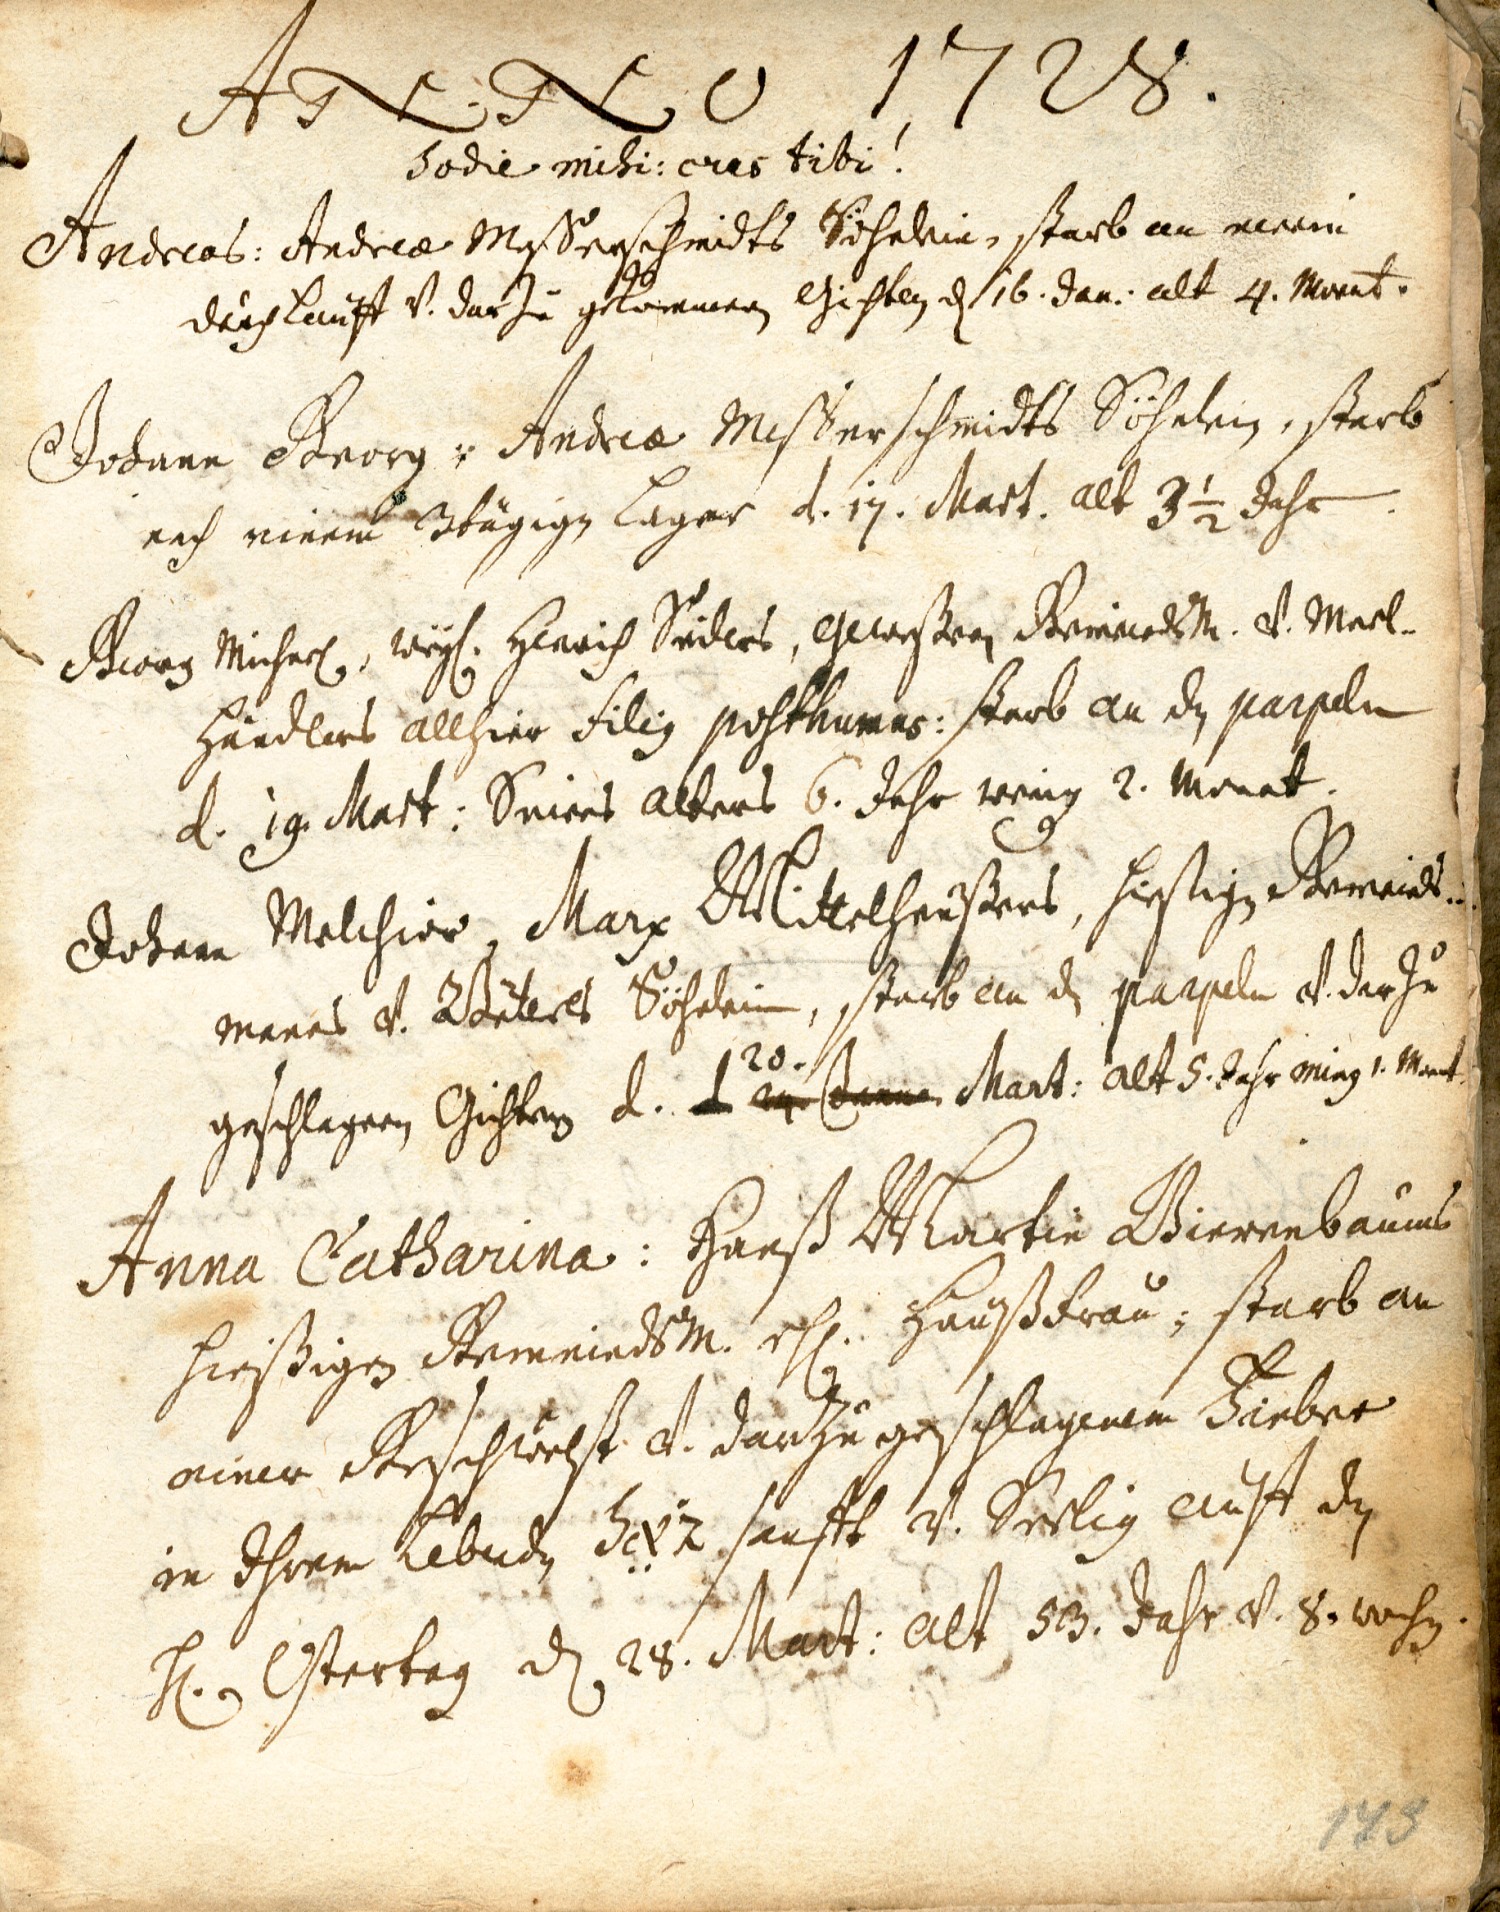 ANNO 1728.
hodie mihi: cras tibi!
Andreas: Andreæ Messerschmidts Söhnlein, starb an einem
durchlauff v. darzu gekommenen Gichtern d 16. Jan: alt 4. Monat.
Johann Georg: Andreæ Messerschmidts Söhnlein, starb
nach einem 3tägigen Lager d. 17. Mart. alt 3 1/2 Jahr.
Georg Michael, Heinrich Seiders, gewessenen GemeindsM. v. Meel-
händlers allhier filig posthumus: starb an den parpeln
d. 19. Mart: Seines alters 6. Jahr wenig 2. Monat.
Johann Melchior, Marx Mittelheussers, hiesigen Gemeinds-
manns v. Söhnlein, starb an d parpeln v. darzu
geschlagenen Gichtern d. 20. Mart: alt 5. Jahr ming 1. Monat.
Anna Catharina: Hanß Martin Bierenbaums
hiesßigen GemeindsM. ehl. Haußfrau; starb an
einer Geschwulst v. darzu geschlagenem Fieber
in Ihrem sanfft v. Seelig auff den
hl. Ostertag d 28. Mart: alt 53. Jahr v. 8. wochen.
173